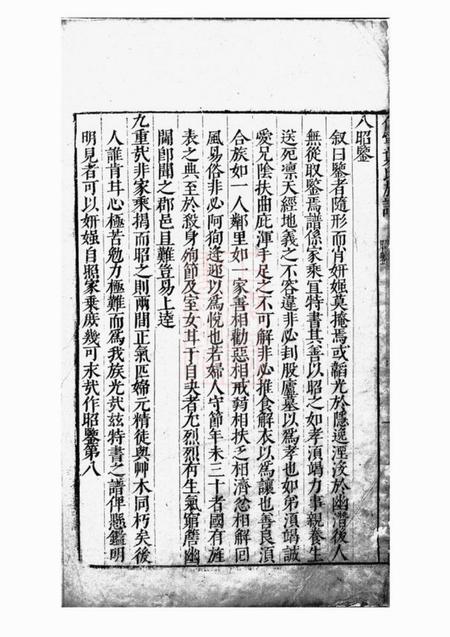 八昭鑒
叙曰鑒者隨形而肖妍媸莫掩焉或韜光於隱逸湮没於幽潛後人
無從取鑒焉譜係家乘冝特書其善以昭之如孝湏竭力事親養生
送死凛天經地義之不容違非必刲股廬墓以爲孝也如弟湏竭誠
愛兄隂扶曲庇渾手足之不可解非必推食解衣以爲讓也善良湏
合族如一人鄰里如一家善相勸惡相戒弱相扶乏相濟忿相解囘
風易俗非必阿狥逄迎以爲恱也若婦人守節年未三十者國有旌
表之典至於殺身殉節及室女耳于自央者尤烈烈有生氣窮簷幽
闢卽聞之郡邑且難豈易上逹
九重㢤非家乘揭而昭之則兩間正氣匹婦元精徒與艸木同朽矣後
人誰肯耳心極苦勉力極難而爲我族光㢤兹特書之譜俾懸鑑明
明見者可以妍媸自照家乘庻幾可永㢤作昭鑒第八